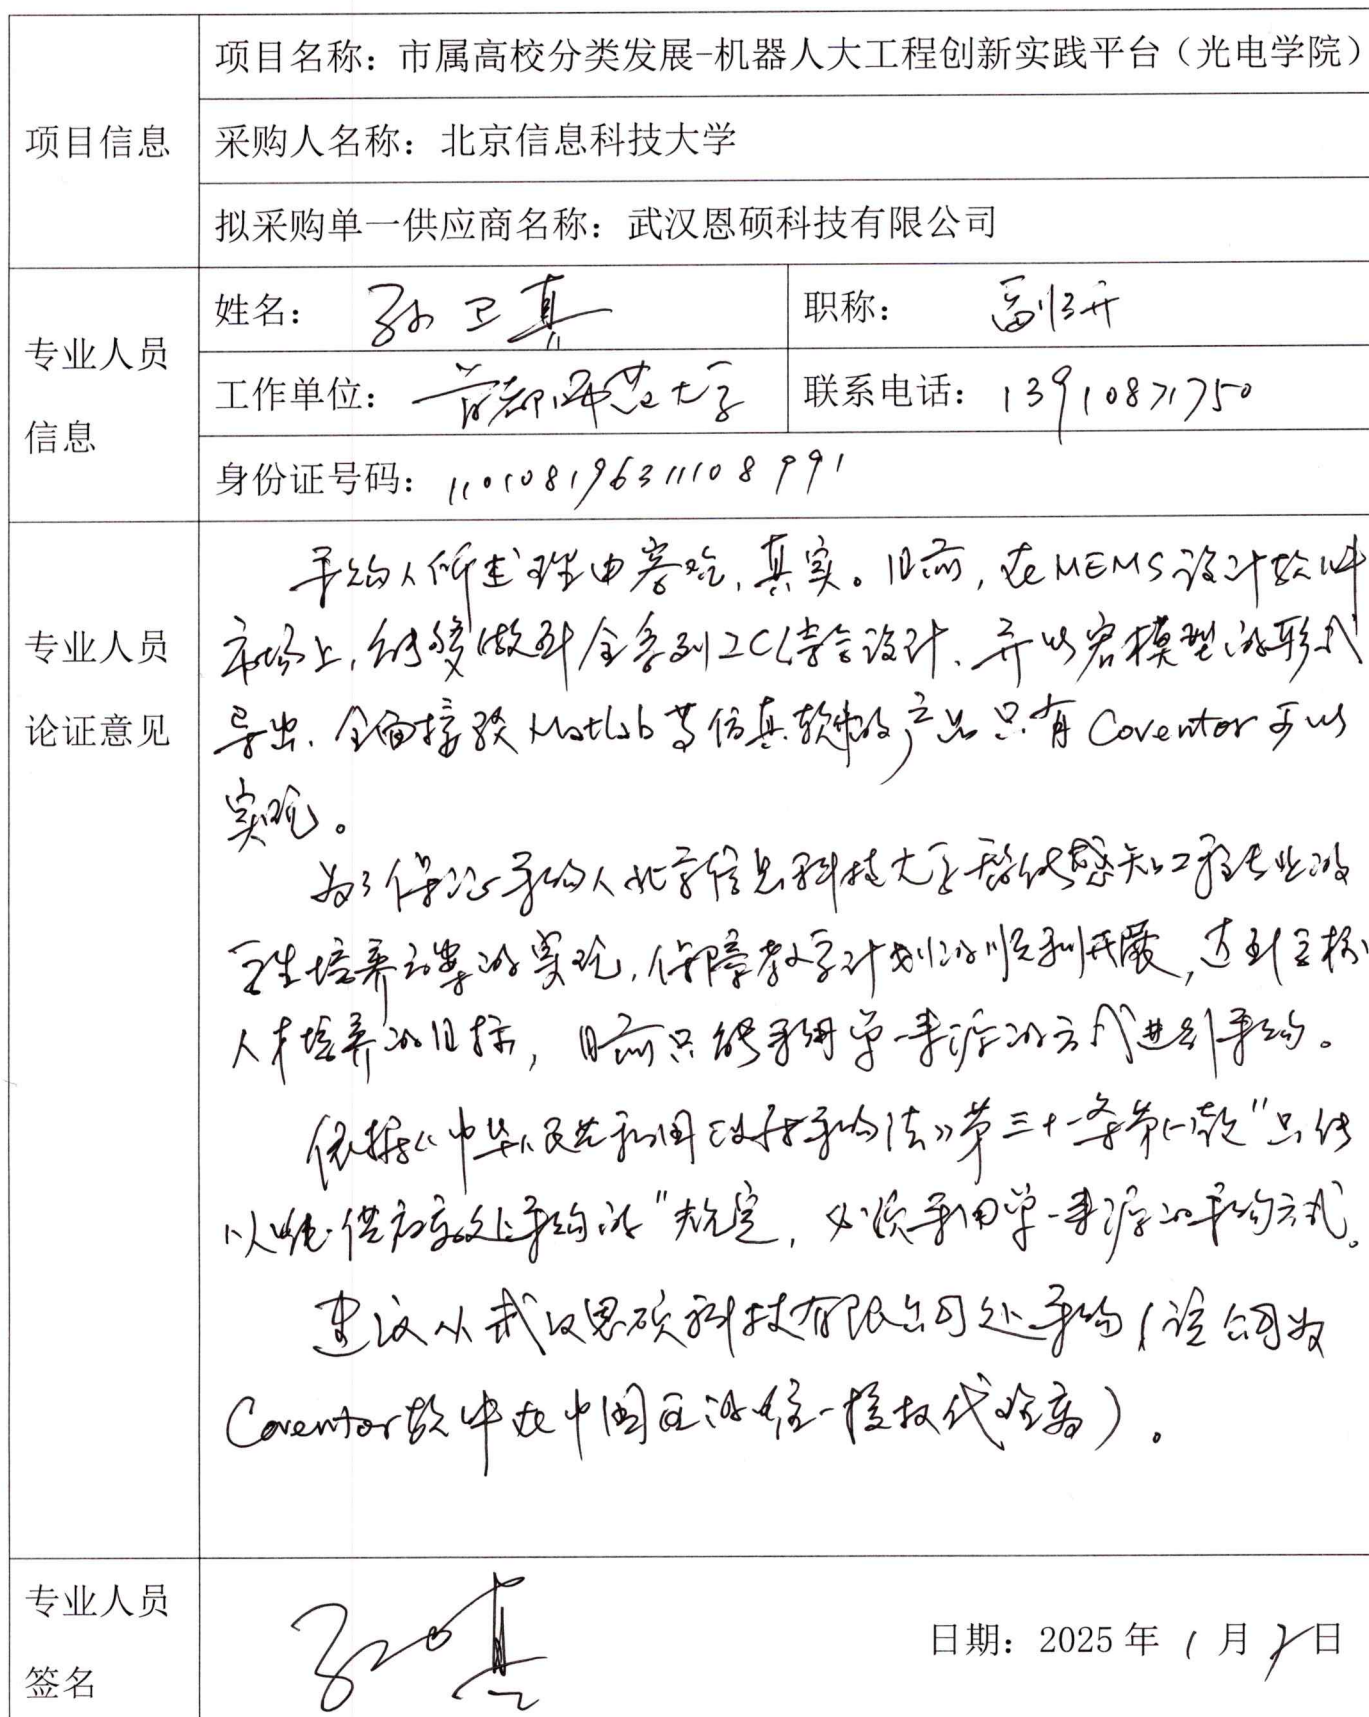 项目信息
项目名称：市属高校分类发展-机器人大工程创新实践平台（光电学院）
采购人名称：北京信息科技大学
拟采购单一供应商名称：武汉恩硕科技有限公司
专业人员
信息
姓名：孙卫真
职称：副研
工作单位：首都师范大学
联系电话：13910871750
身份证号码：110108196311108991
专业人员
论证意见
采购人所述理由客观，真实。目前，在MEMS设计软件
市场上，能够做到全系列IC结合设计，并以宏模型的形式
导出，全面接驳Matlab等仿真软件的产品只有Coventor可以
实现。
为了保证采购人北京信息科技大学智能感知工程专业的
学生培养方案的实现，保障教学计划的顺利开展，达到
人才培养的目标，目前只能采用单一来源的方式进行采购。
依据《中华人民共和国政府采购法》第三十一条第一款"只能
从唯一供应商处采购的"规定，必须采用单一来源的采购方式。
建议从武汉恩硕科技有限公司处采购（该公司为
Coventor软件在中国区的唯一授权代理商）。
专业人员
签名
孙卫真
日期：2025年1月7日